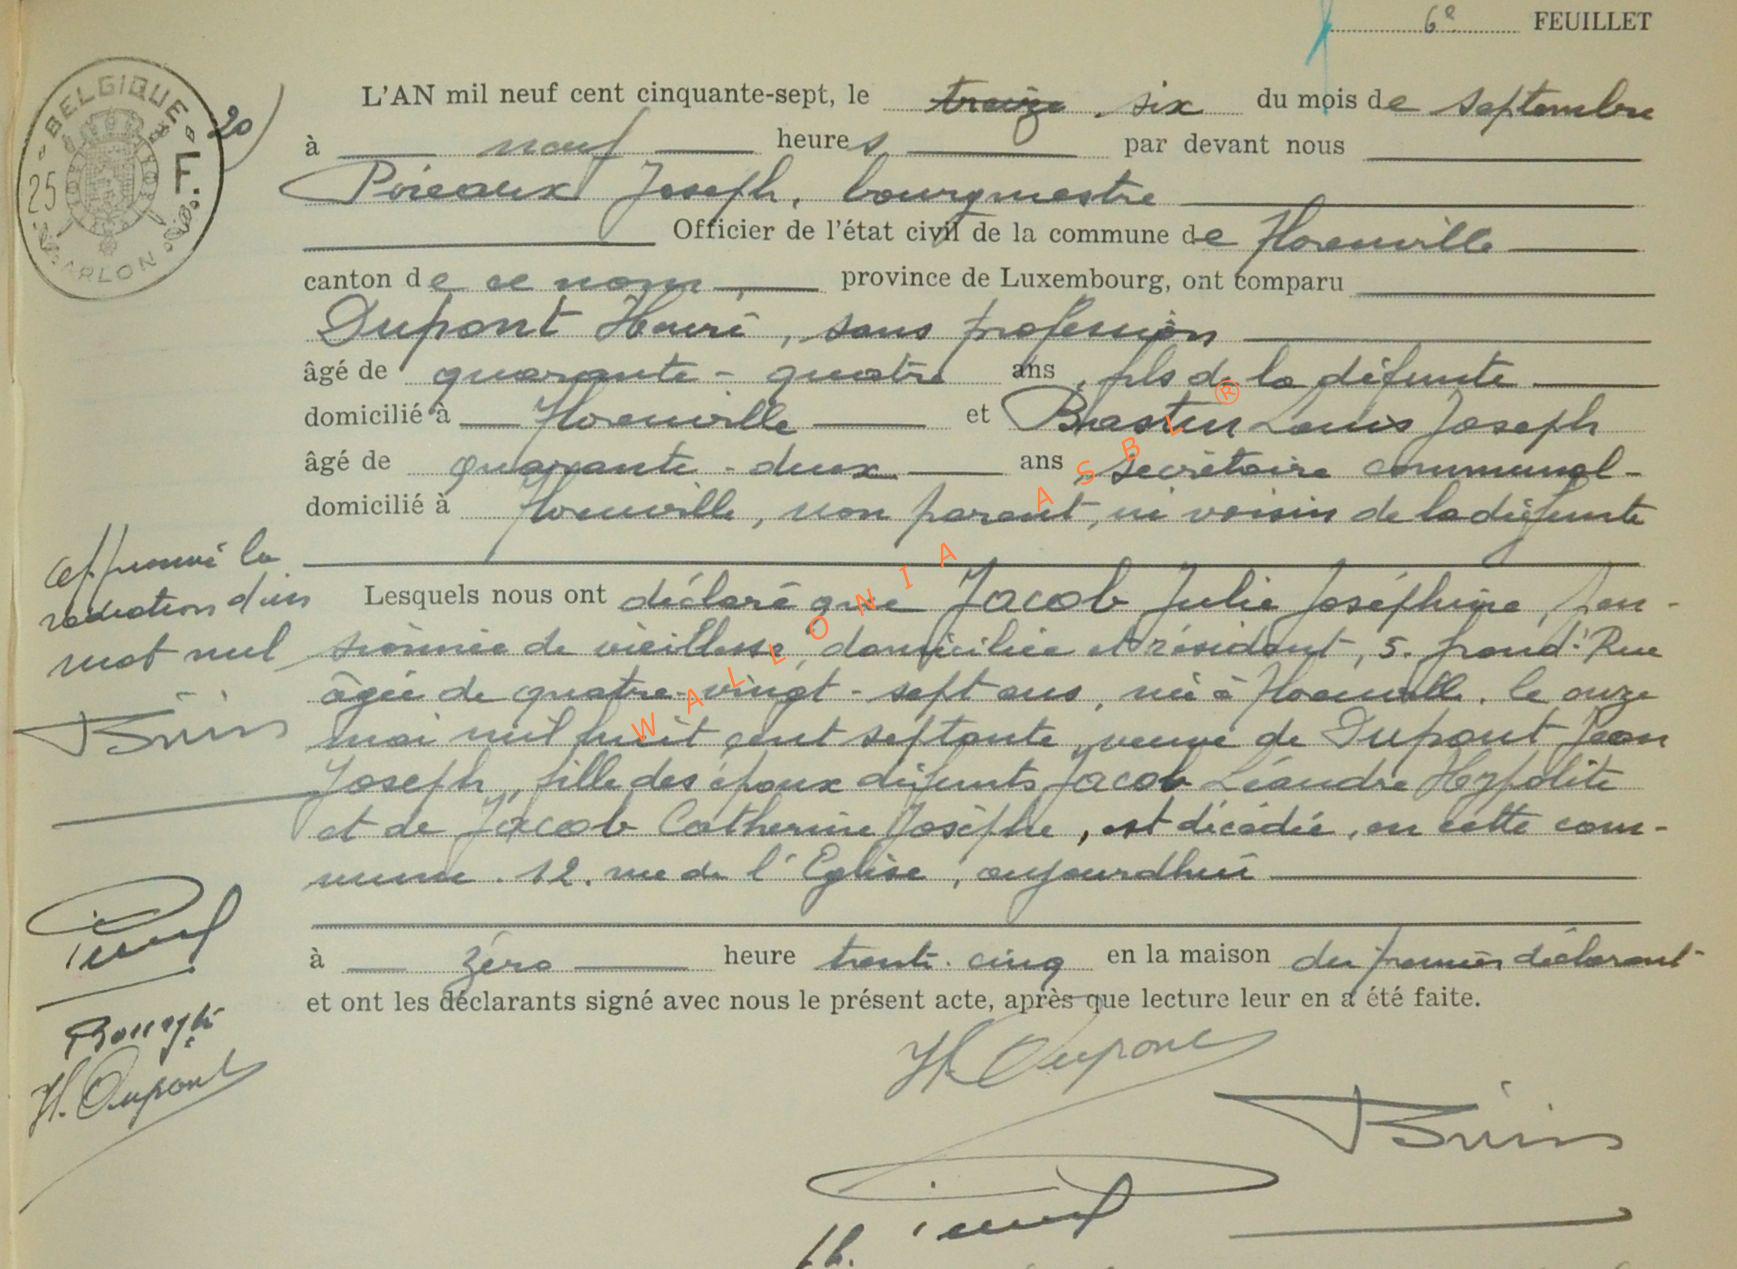 6e FEUILLET
BELGIQUE
25 F.
ARLON
20)
L'AN mil neuf cent cinquante-sept, le treize six du mois de septembre
à neuf heures par devant nous
Poireaux Joseph, bourgmestre
Officier de l'état civil de la commune de Florenville
canton de ce nom, province de Luxembourg, ont comparu
Dupont Henri, sans profession
âgé de quarante-quatre ans, fils de la défunte
domicilié à Florenville et Louis Joseph
âgé de quarante-deux ans, secrétaire communal
domicilié à Florenville, non parent, ni voisin de la défunte
Approuvé la
radiation d'un
mot nul
Lesquels nous ont déclaré que Jacob Julie Joséphine, pen-
sionnée de vieillesse, domiciliée et résidant, 5. grand'Rue
âgée de quatre-vingt-sept ans, née à Florenville, le onze
mai mil huit cent septante, veuve de Dupont Jean
Joseph, fille des époux défunts Jacob Léandre Hypolite
et de Jacob Catherine Josèphe, est décédée, en cette com-
mune. 12. rue de l'Eglise, aujourdhui
à zéro heure trente-cinq en la maison du premier déclarant
et ont les déclarants signé avec nous le présent acte, après que lecture leur en a été faite.
H. Dupont
H. Dupont
WALLONIA ASBL ®